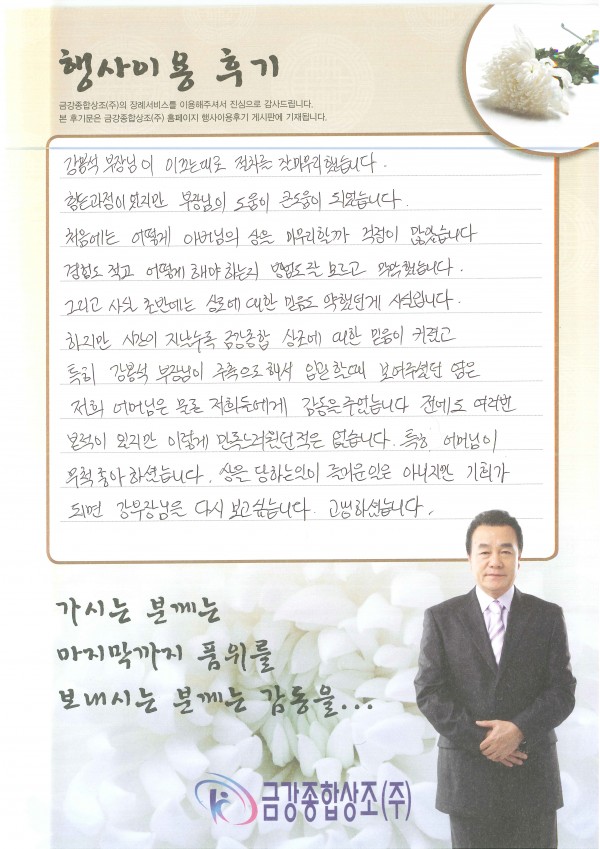 행사이용 후기
금강종합상조(주)의 장례서비스를 이용해주셔서 진심으로 감사드립니다.
본 후기문은 금강종합상조(주) 홈페이지 행사이용후기 게시판에 기재됩니다.
강봉석 부장님이 이끄는대로 절차를 잘마무리했습니다.
힘든과정이있지만 부장님의 도움이 큰도움이 되었습니다.
처음에는 어떻게 아버님의 상을 마무리할까 걱정이 많았습니다
경험도 적고 어떻게 해야 하는지 방법도잘 모르고 막막했습니다.
그리고 사실 초반에는 상조에 대한 믿음도 약했던게 사실입니다.
하지만 시간이 지날수록 금강종합 상조에 대한 믿음이 커졌고
특히 강봉석 부장님이 주축으로해서 입관할때 보여주셨던 염은
저희 어머님은 물론 저희들에게 감동을주었습니다 전에도 여러번
본적이 있지만 이렇게 만족스러웠던적은 없습니다. 특히 어머님이
무척 좋아하셨습니다. 상을 당하는일이 즐거운일은 아니지만 기회가
되면 강부장님을 다시 보고싶습니다. 고생하셨습니다.
가시는 분께는
마지막까지 품위를
보내시는 분께는 감동을...
금강종합상조(주)